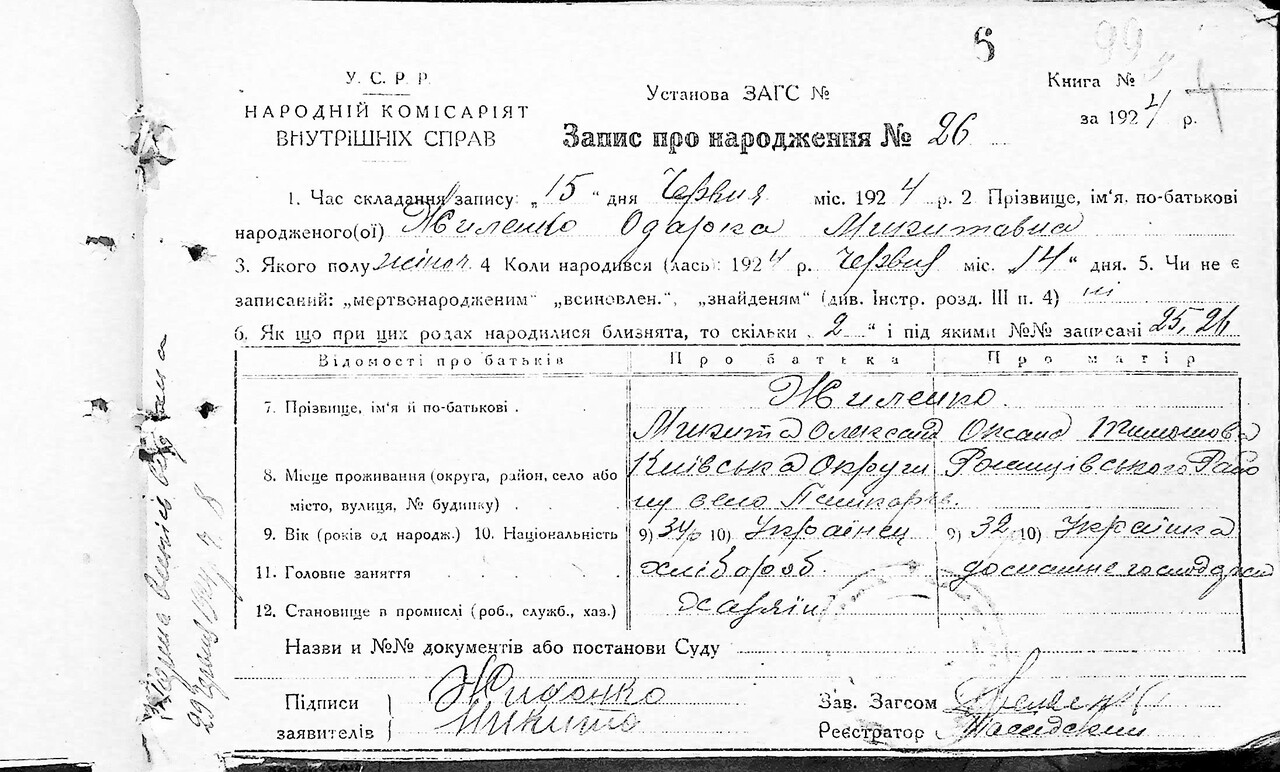 6
99
У. С. Р. Р.
НАРОДНІЙ КОМІСАРІЯТ
ВНУТРІШНІХ СПРАВ
Установа ЗАГС №
Книга №
за 1924 р.
Запис про народження № 26
1. Час складання запису: „15“ дня Червня міс. 1924 р. 2 Прізвище, ім'я. по-батькові
народженого(ої) Жиленко Одарка Микитавна
3. Якого полу жіноч 4 Коли народився (лась): 1924 р. Червня міс. „14“ дня. 5. Чи не є
записаний: „мертвонародженим“ „всиновлен.“, „знайденям“ (див. Інстр. розд. III п. 4) ні
6. Як що при цих родах народилися близнята, то скільки „2“ і під якими №№ записані 25, 26
Відомості про батьків Про батька Про матір
7. Прізвище, ім'я й по-батькові . Жиленко
Микита Олександ Оксана Тимошова
8. Місце проживання (округа, район, село або Київська Округи Району
місто, вулиця, № будинку) село
9. Вік (років од народж.) 10. Національність 9) 34р 10) Українец 9) 32 10) Українка
11. Головне заняття хлібороб. домашне господарка
12. Становище в промислі (роб., служб., хаз.) Хазяїн
Назви и №№ документів або постанови Суду
Підписи
заявителів
Жиленко
Микита
Зав. Загсом
Реєстратор